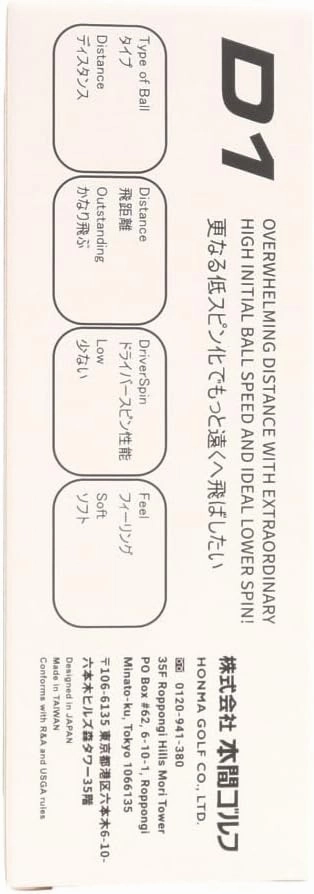 D1
OVERWHELMING DISTANCE WITH EXTRAORDINARY
HIGH INITIAL BALL SPEED AND IDEAL LOWER SPIN!
更なる低スピン化でもっと遠くへ飛ばしたい
Type of Ball
タイプ
Distance
ディスタンス
Distance
飛距離
Outstanding
かなり飛ぶ
DriverSpin
ドライバースピン性能
Low
少ない
Feel
フィーリング
Soft
ソフト
株式会社 本間ゴルフ
HONMA GOLF CO., LTD.
0120-941-380
35F Roppongi Hills Mori Tower
PO Box #62, 6-10-1, Roppongi
Minato-ku, Tokyo 1066135
〒106-6135 東京都港区六本木6-10-
六本木ヒルズ森タワー35階
Designed in JAPAN
Made in TAIWAN
Conforms with R&A and USGA rules